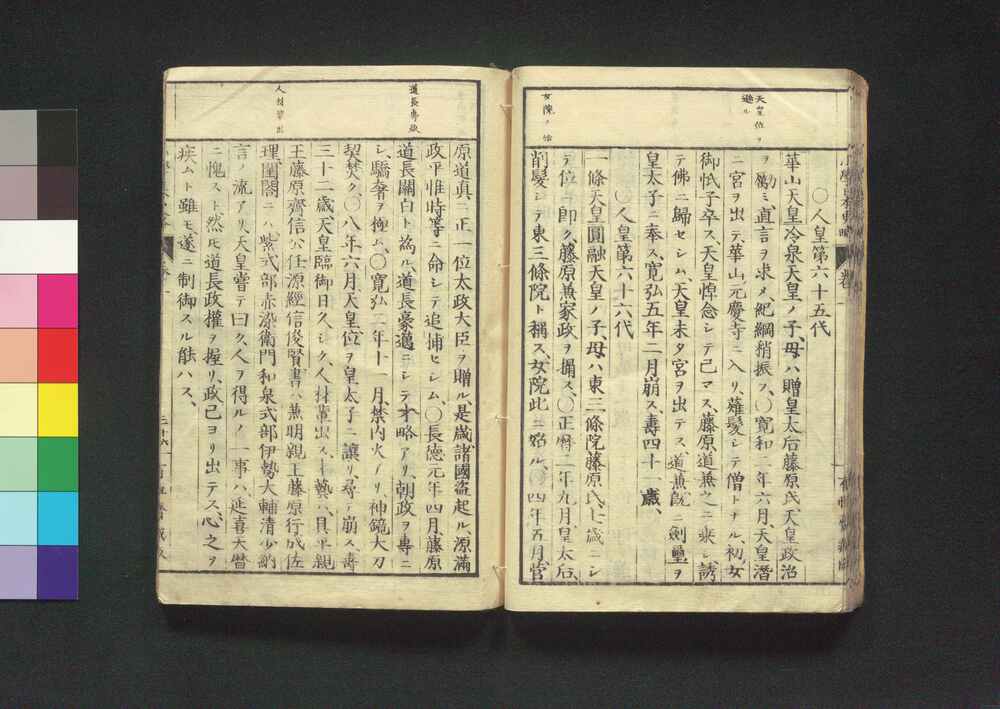 天皇位ヲ
避ル
女院ノ始
〇人皇第六十五代
華山天皇冷泉天皇ノ子、母ハ贈皇太后藤原氏、天皇政治
ヲ勵ミ、直言ヲ求メ、紀綱稍振フ、〇寛和二年六月、天皇潛
ニ宮ヲ出テ、華山元慶寺ニ入リ、薙髮シテ僧トナル、初、女
御忯子卒ス、天皇悼念シテ已マス、藤原道兼之ニ乘シ、誘
テ佛ニ歸セシム、天皇未タ宮ヲ出テス、道兼既ニ劍璽ヲ
皇太子ニ奉ス、寛弘五年二月崩ス、壽四十一歳、
〇人皇第六十六代
一條天皇圓融天皇ノ子、母ハ東三條院藤原氏、七歳ニシ
テ位ニ即ク、藤原兼家政ヲ攝ス、〇正暦二年九月、皇太后、
削髮シテ東三條院ト稱ス、女院此ニ始ル、〇四年五月、菅
道長專政
人材輩出
原道眞ニ正一位太政大臣ヲ贈ル、是歳、諸國盜起ル、源滿
政平惟時等ニ命シテ追捕セシム、〇長德元年四月、藤原
道長關白ト為ル、道長豪邁ニシテ才略アリ、朝政ヲ專ニ
シ、驕奢ヲ極ム、〇寛弘二年十一月、禁内火アリ、神鏡大刀
契焚ク、〇八年六月、天皇位ヲ皇太子ニ讓リ、尋テ崩ス、壽
三十二歳、天皇臨御日久シク、人材輩出ス、才藝ハ具平親
王藤原齊信公任源經信俊賢、書ハ兼明親王藤原行成佐
理、閨閤ニハ紫式部赤染衞門和泉式部伊勢大輔清少納
言ノ流アリ、天皇嘗テ曰ク、人ヲ得ルノ一事ハ、延喜天暦
ニ愧スト、然𪜈道長政權ヲ握リ、政己ヨリ出テス、心之ヲ
疾ムト雖モ、遂ニ制御スル能ハス、